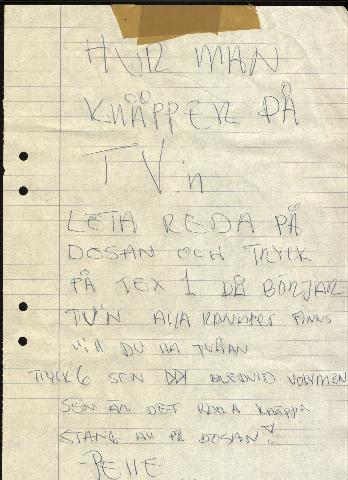 HUR MAN
KNÄPPER PÅ
TV:n
LETA REDA PÅ
DOSAN OCH TRYCK
PÅ TEX 1 DÅ BÖRJAR
TV'N ALLA FINNS
VILL DU HA
TRYCK 6 SEN BREDVID VOLYMEN
SEN ÄR DET RÖDA KNAPPEN
STÄNG AV PÅ DOSAN!
PELLE